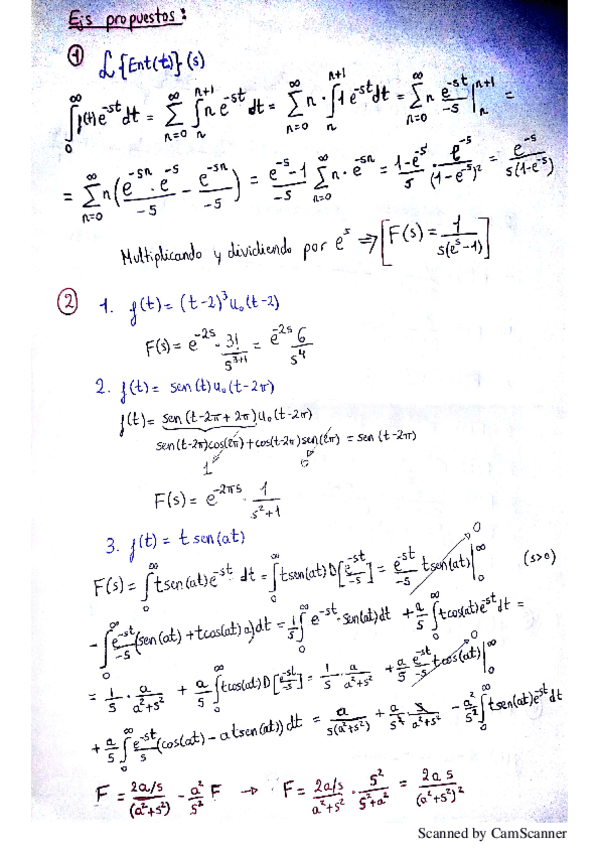 Ejs propuestos:
① ℒ{Ent(t)}(s)
∫₀^∞ f(t)e^{-st}dt = Σ_{n=0}^∞ ∫_n^{n+1} n e^{-st} dt = Σ_{n=0}^∞ n · ∫_n^{n+1} 1 e^{-st} dt = Σ_{n=0}^∞ n e^{-st}/-s |_n^{n+1} =
= Σ_{n=0}^∞ n (e^{-sn} · e^{-s}/-s - e^{-sn}/-s) = e^{-s}-1/-s Σ_{n=0}^∞ n · e^{-sn} = 1-e^{-s}/s · e^{-s}/(1-e^{-s})² = e^{-s}/s(1-e^{-s})
Multiplicando y dividiendo por e^s ⇒ [F(s) = 1/s(e^s-1)]
② 1. f(t) = (t-2)³ u₀(t-2)
F(s) = e^{-2s} · 3!/s^{3+1} = e^{-2s} 6/s⁴
2. f(t) = sen(t) u₀(t-2π)
f(t) = sen(t-2π+2π) u₀(t-2π)
sen(t-2π)cos(2π) + cos(t-2π)sen(2π) = sen(t-2π)
1 0
F(s) = e^{-2πs} · 1/s²+1
3. f(t) = t sen(at)
F(s) = ∫₀^∞ t sen(at) e^{-st} dt = ∫₀^∞ t sen(at) D[e^{-st}/-s] = e^{-st}/-s t sen(at) |₀^∞ 0 (s>0)
- ∫₀^∞ e^{-st}/-s (sen(at) + t cos(at) a) dt = 1/s ∫₀^∞ e^{-st} · sen(at) dt + a/s ∫₀^∞ t cos(at) e^{-st} dt =
= 1/s · a/a²+s² + a/s ∫₀^∞ t cos(at) D[e^{-st}/-s] = 1/s · a/a²+s² + a/s e^{-st}/-s t cos(at) |₀^∞ 0
+ a/s ∫₀^∞ e^{-st}/s (cos(at) - a t sen(at)) dt = a/s(a²+s²) + a/s² · s/a²+s² - a²/s² ∫₀^∞ t sen(at) e^{-st} dt
F = 2a/s/(a²+s²) - a²/s² F → F = 2a/s/a²+s² · s²/s²+a² = 2as/(a²+s²)²
Scanned by CamScanner